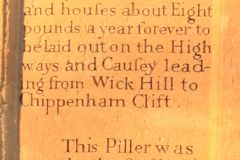 and houses about Eight
pounds a year forever to
be laid out on the High
ways and Causey lead-
ing from Wick Hill to
Chippenham Clift.
This Piller was